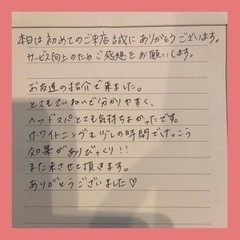 本日は初めてのご来店誠にありがとうございます。
サービス向上のためご感想をお願いします。
お友達の紹介で来ました。
とてもていねいで分かりやすく、
ヘッドスパとても気持ちよかったです。
ホワイトニングも少しの時間でけっこう
効果がありびっくり!!
また来させて頂きます。
ありがとうございました♡